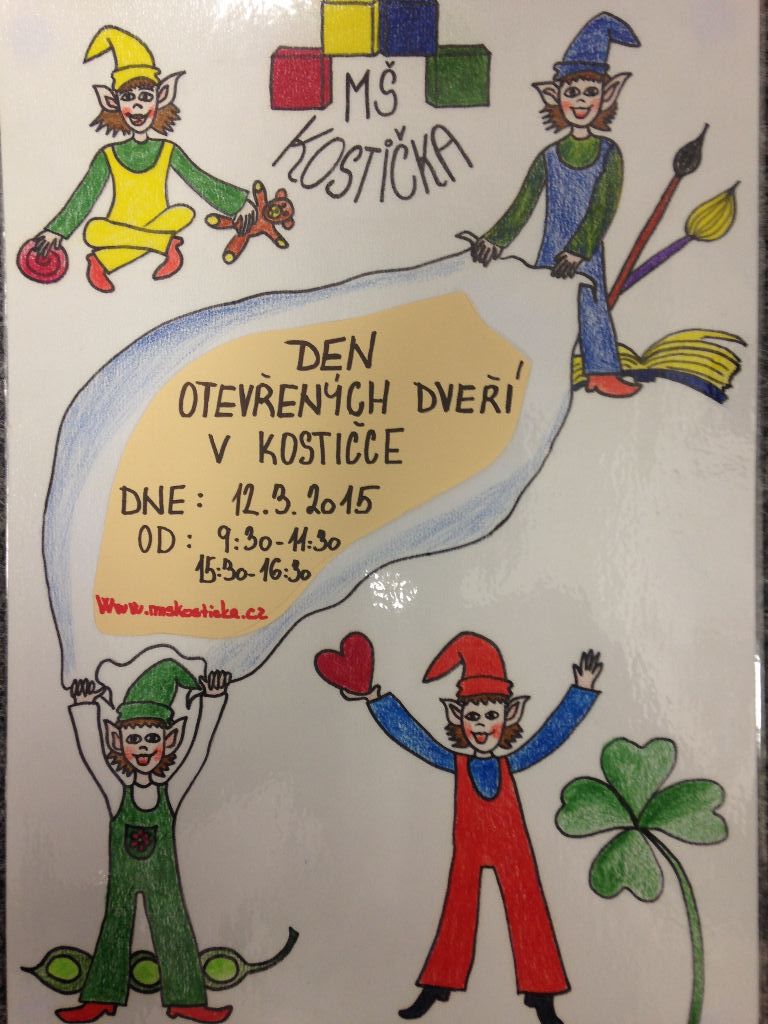 MŠ
KOSTIČKA
DEN
OTEVŘENÝCH DVEŘÍ
V KOSTIČCE
DNE: 12.3.2015
OD: 9:30-11:30
15:30-16:30
www.mskosticka.cz